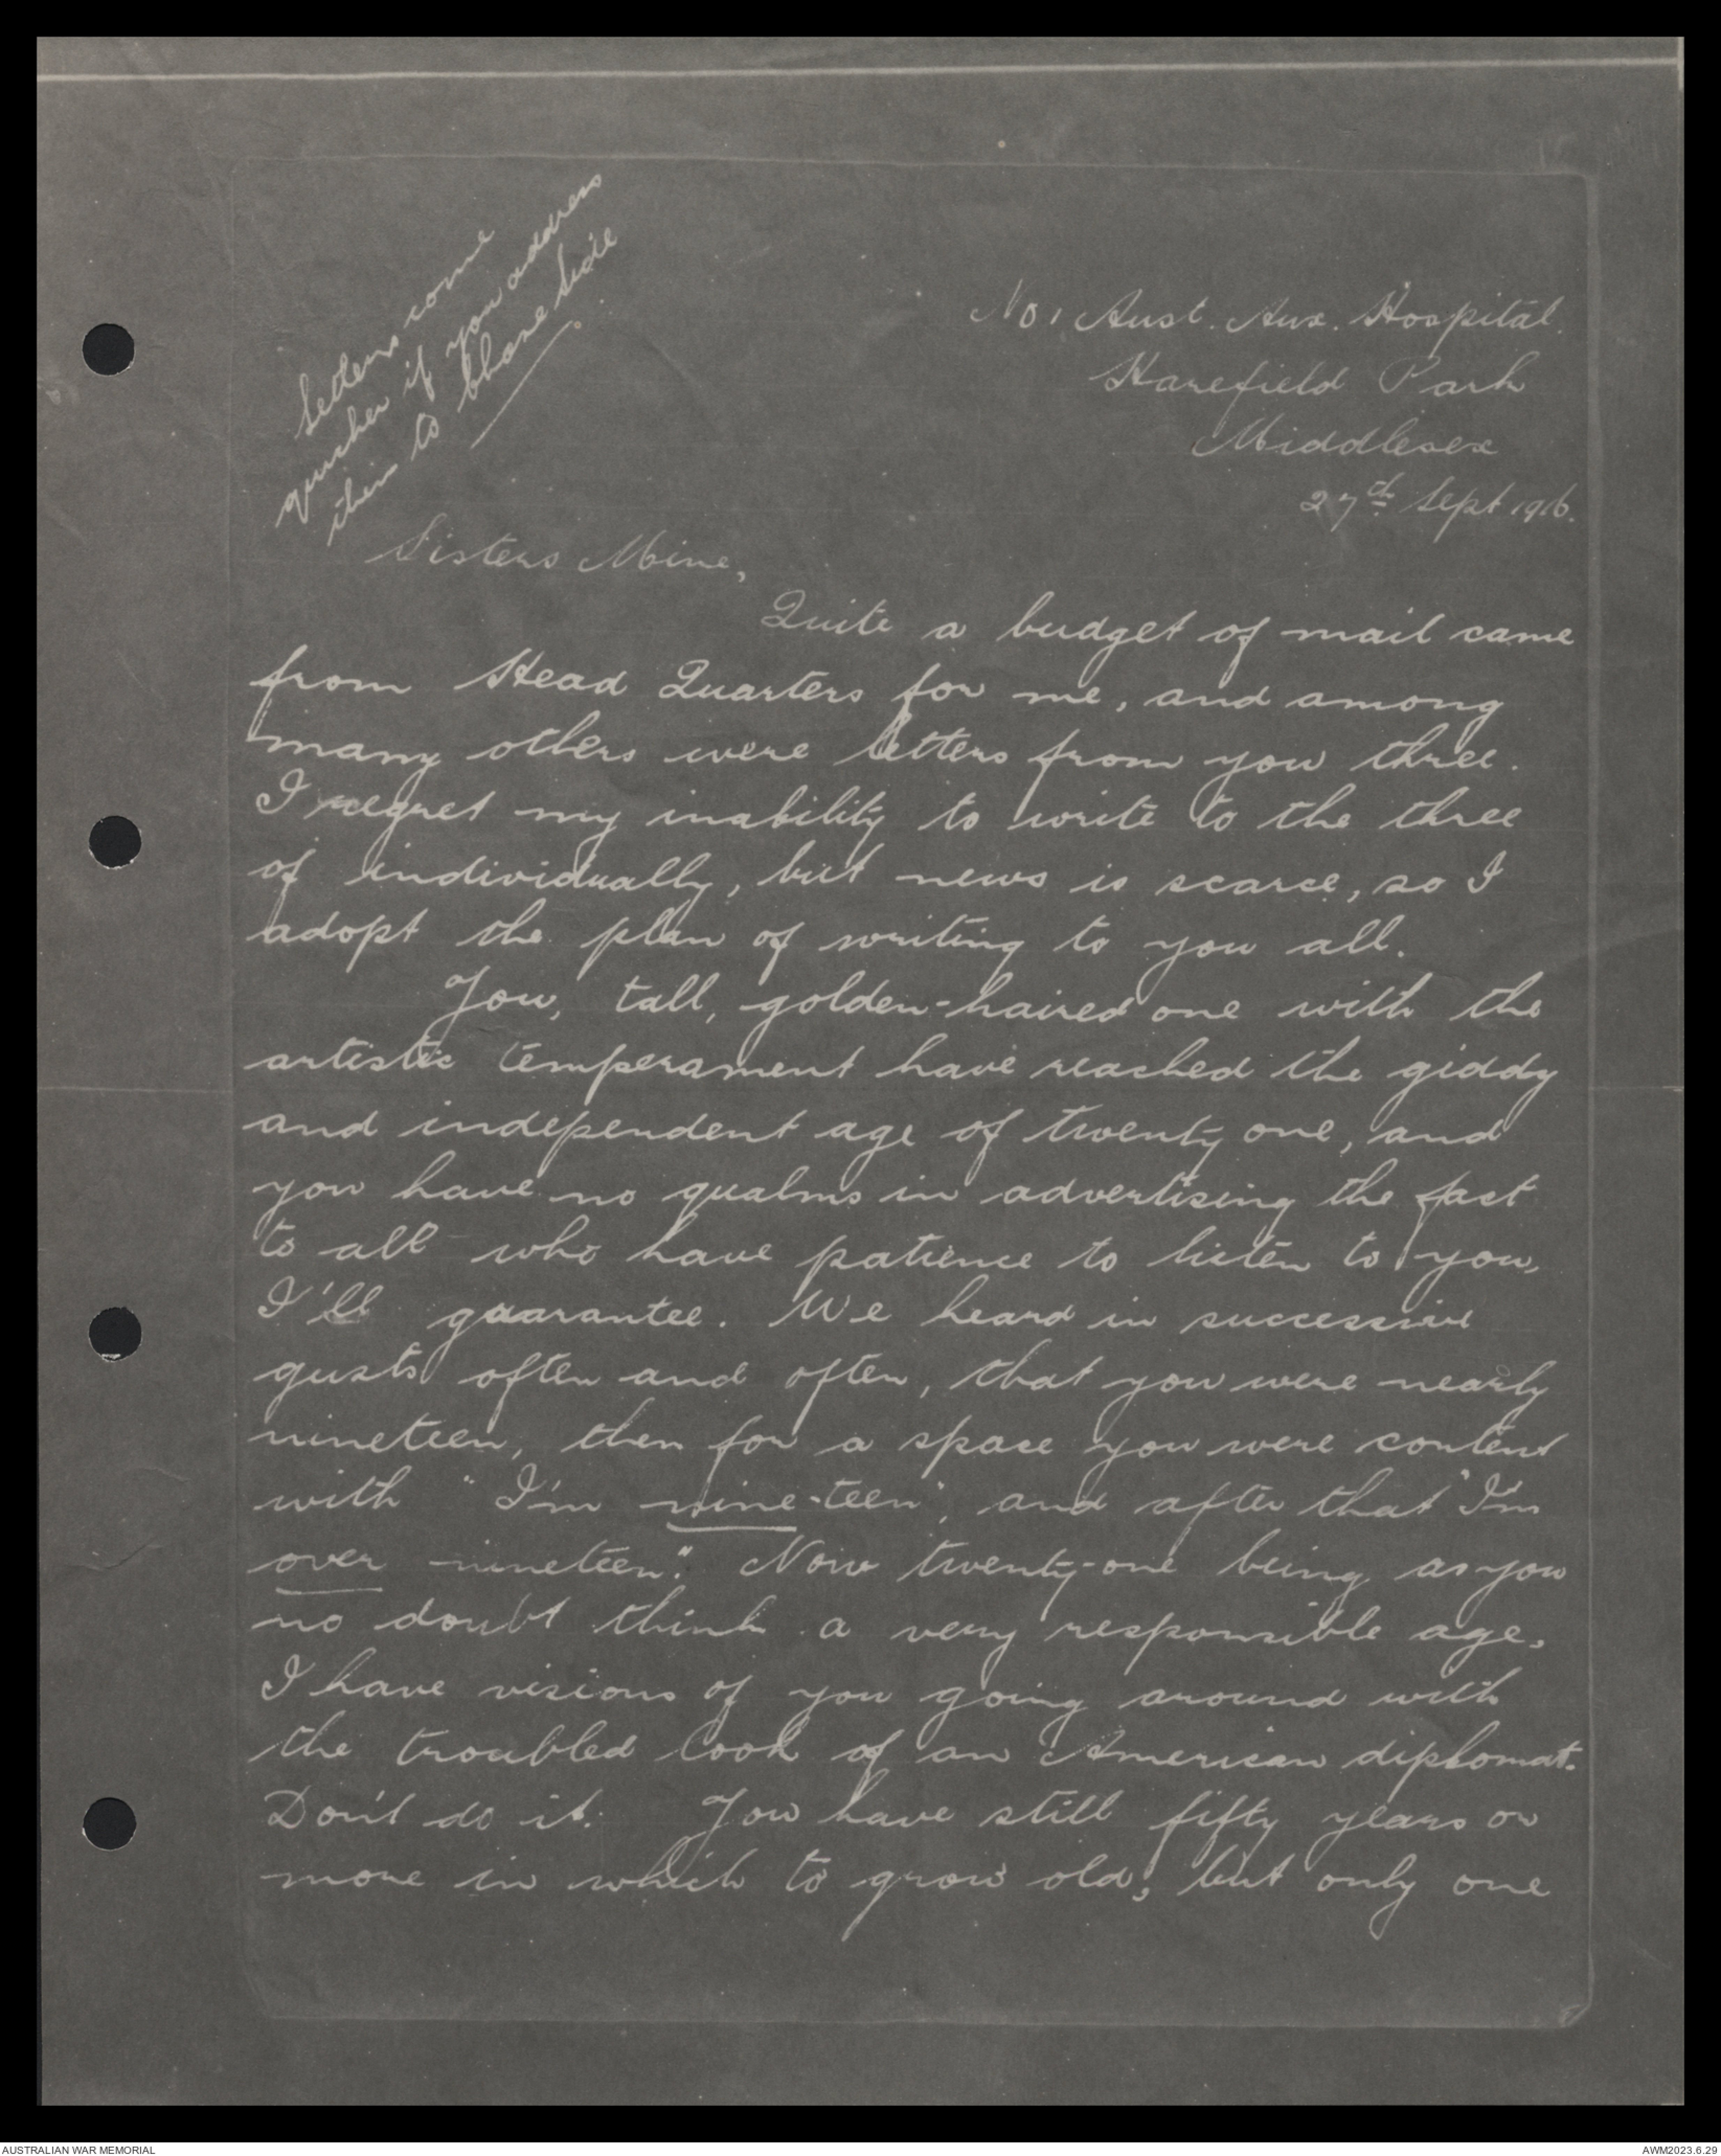 Letters come
quicker if you address
them to Chase Side
No 1 Aust. Aux. Hospital.
Harefield Park
Middlesex
27th Sept 1916.
Sisters Mine,
Quite a budget of mail came
from Head Quarters for me, and among
many others were letters from you three.
I regret my inability to write to the three
of individually, but news is scarce, so I
adopt the plan of writing to you all.
You, tall, golden-haired one with the
artistic temperament have reached the giddy
and independent age of twenty one, and
you have no qualms in advertising the fact
to all who have patience to listen to you,
I'll guarantee. We heard in successive
gusts often and often, that you were nearly
nineteen, then for a space you were content
with "I'm nine-teen", and after that "I'm
over nineteen." Now twenty-one being as you
no doubt think a very responsible age,
I have visions of you going around with
the troubled look of an American diplomat.
Don't do it. You have still fifty years or
more in which to grow old, but only one
AUSTRALIAN WAR MEMORIAL
AWM2023.6.29